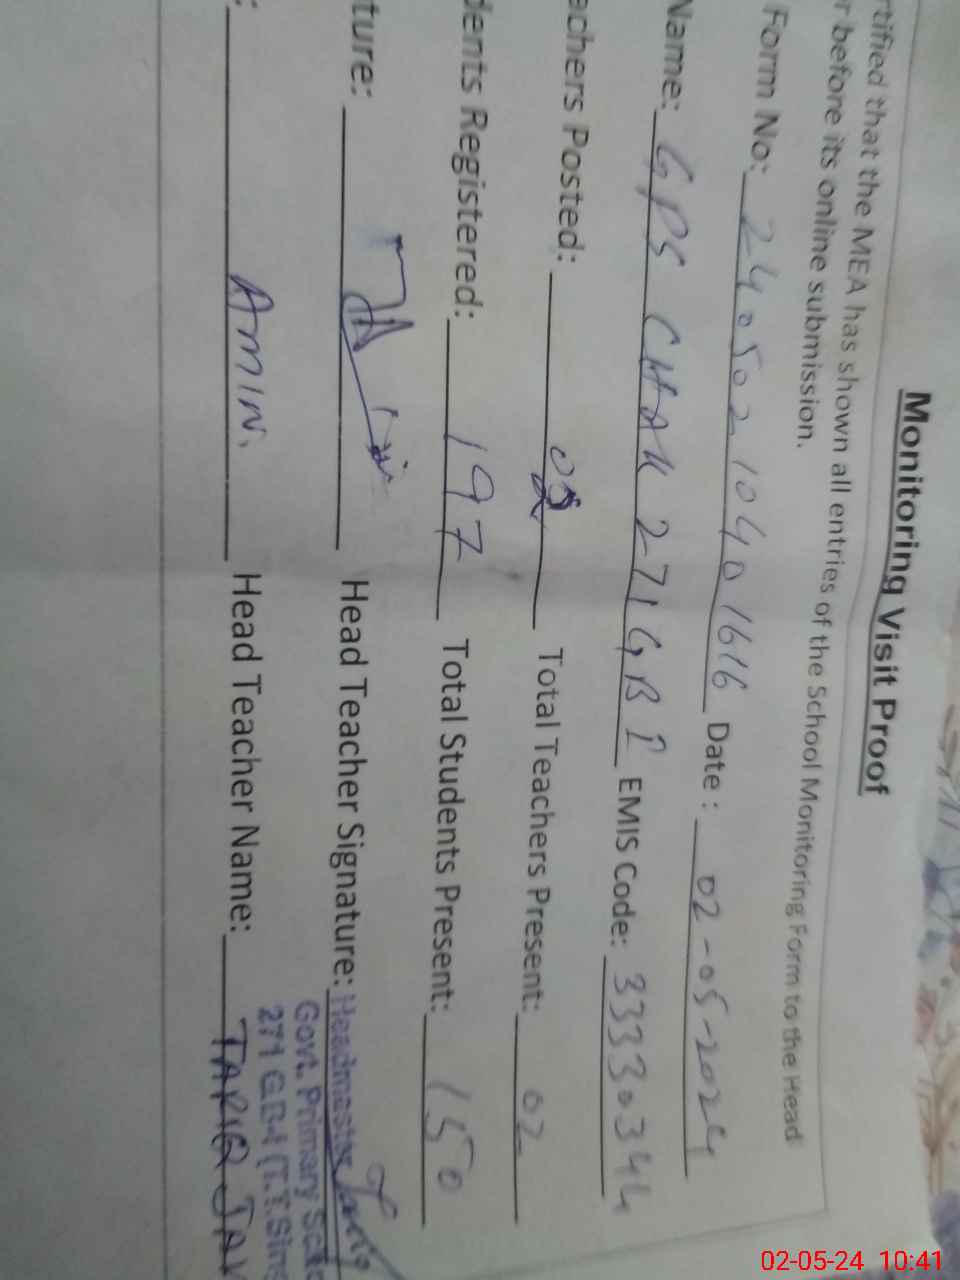 Monitoring Visit Proof
rtified that the MEA has shown all entries of the School Monitoring Form to the Head
r before its online submission.
Form No: 2405021040 1616 Date: 02-05-2024
Name: GPS CHAK 271 GB I EMIS Code: 33330344
achers Posted: Total Teachers Present: 02
dents Registered: 197 Total Students Present: 150
ture: Head Teacher Signature: Headmaster
Govt. Primary Sch
271 GB-1 (T.T.Sing
: AMIN. Head Teacher Name: TARIQ JAV
02-05-24 10:41